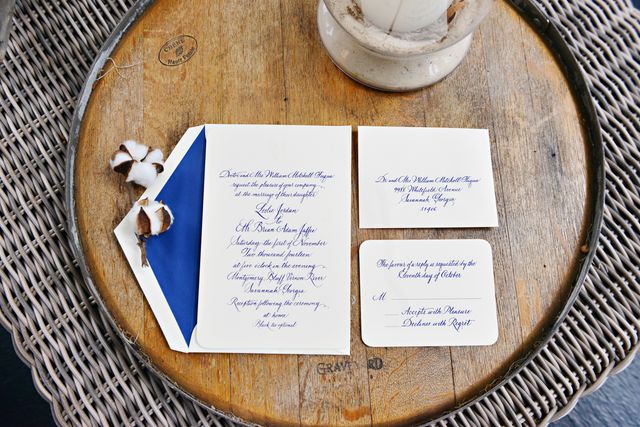 Doctor and Mrs. William Mitchell
request the pleasure of your company
at the marriage of their daughter
Leslie Jordan
to
Mr. Brian Adam Jaffe
Saturday, the first of November
Two thousand fourteen
at five o'clock in the evening
Montgomery Bluff Vernon River
Savannah, Georgia
Reception following the ceremony
at home
Black tie optional
Dr. and Mrs. William Mitchell
Whitefield Avenue
Savannah, Georgia
31406
The favour of a reply is requested by the
Eleventh day of October
M
Accepts with Pleasure
Declines with Regret